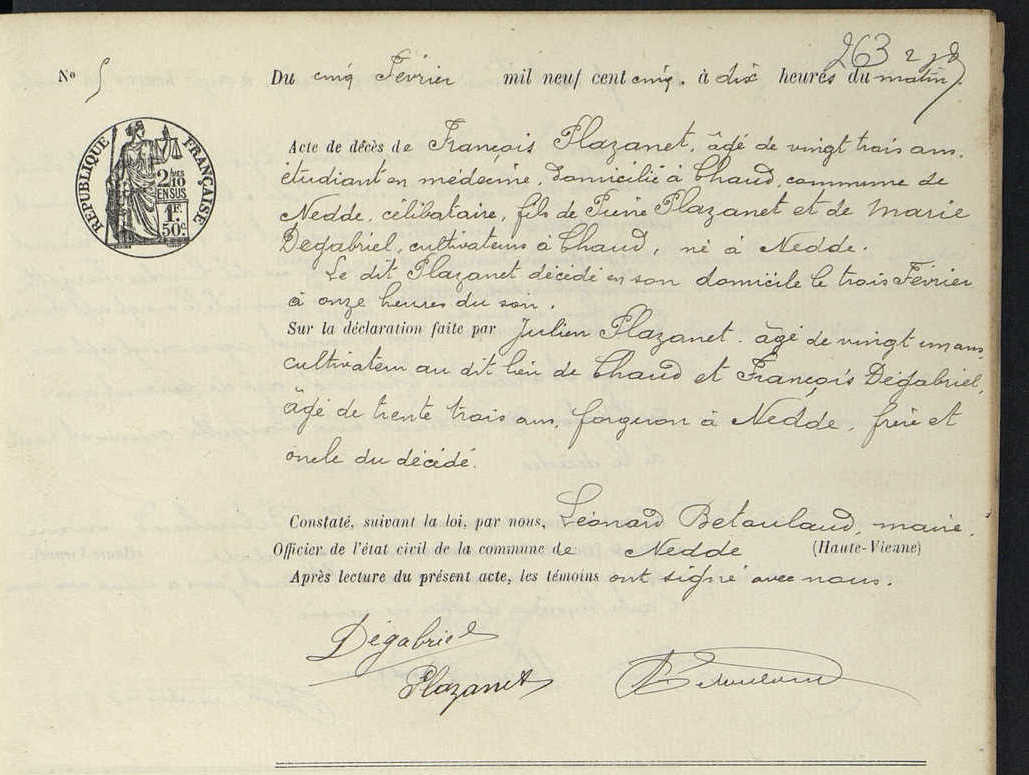 263
N° 5 Du cinq Février mil neuf cent cinq. à dix heures du matin.
RÉPUBLIQUE FRANÇAISE
2/10
EN SUS
1F
50c
Acte de décès de François Plazanet, âgé de vingt trois ans,
étudiant en médecine, domicilié à Chaud, commune de
Nedde, célibataire, fils de Pierre Plazanet et de Marie
Dégabriel, cultivateurs à Chaud, né à Nedde.
Le dit Plazanet décédé en son domicile le trois Février
à onze heures du soir.
Sur la déclaration faite par Julien Plazanet, âgé de vingt un ans,
cultivateur au dit lieu de Chaud et François Dégabriel,
âgé de trente trois ans, forgeron à Nedde, frère et
oncle du décédé.
Constaté, suivant la loi, par nous, Léonard Betoulaud, maire,
Officier de l'état civil de la commune de Nedde (Haute-Vienne)
Après lecture du présent acte, les témoins ont signé avec nous.
Dégabriel
Plazanet
Betoulaud